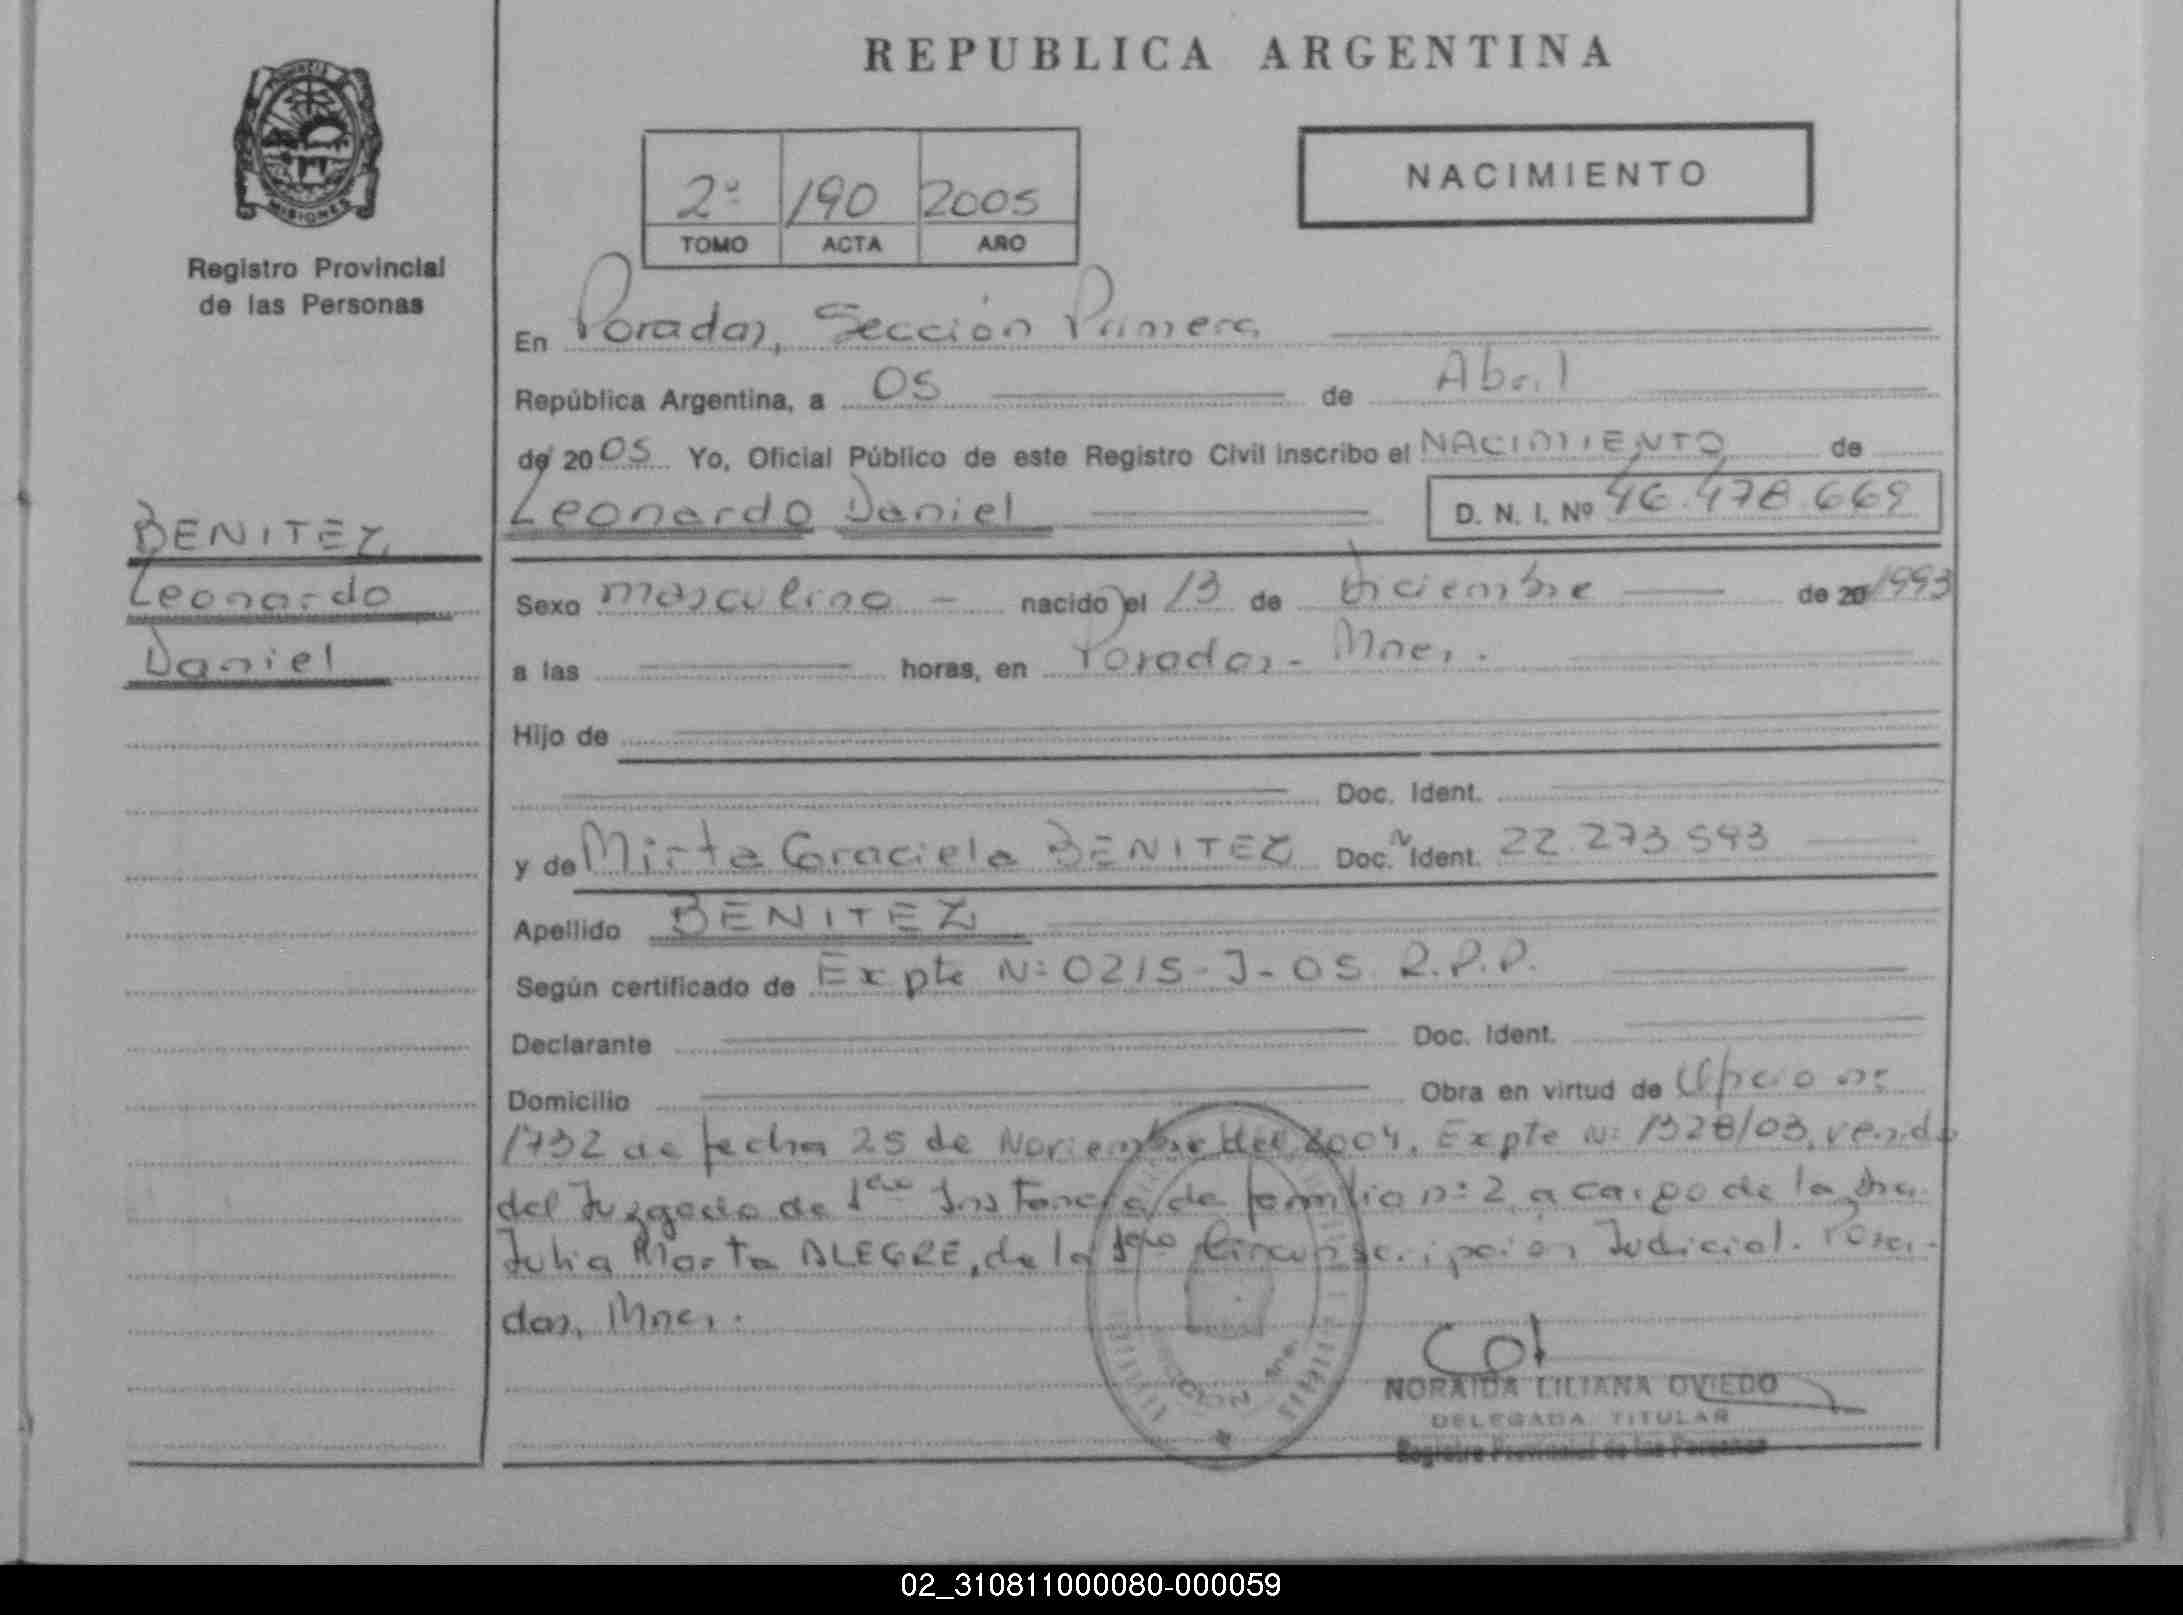 REPUBLICA ARGENTINA
MISIONES
Registro Provincial
de las Personas
2º 190 2005
TOMO ACTA AÑO
NACIMIENTO
En Posadas, Sección Primera
República Argentina, a 05 de Abril
de 2005 Yo, Oficial Público de este Registro Civil inscribo el NACIMIENTO de
Leonardo Daniel D. N. I. Nº 46.478.669
BENITEZ
Leonardo
Daniel
Sexo masculino - nacido el 13 de diciembre de 20 1993
a las horas, en Posadas - Mnes.
Hijo de
Doc. Ident.
y de Mirta Graciela BENITEZ Doc. Ident. 22.273.543
Apellido BENITEZ
Según certificado de Expte Nº 0215-J-05 R.P.P.
Declarante Doc. Ident.
Domicilio Obra en virtud de
1732 de fecha 25 de Noviembre del 2004, Expte Nº 1328/03, venido
del Juzgado de 1era Instancia de familia nº 2 a cargo de la Dra.
Julia Marta ALEGRE, de la 1era Circunscripción Judicial. Posa-
das, Mnes.
NORAIDA LILIANA OVIEDO
DELEGADA TITULAR
Registro Provincial de las Personas
02_310811000080-000059